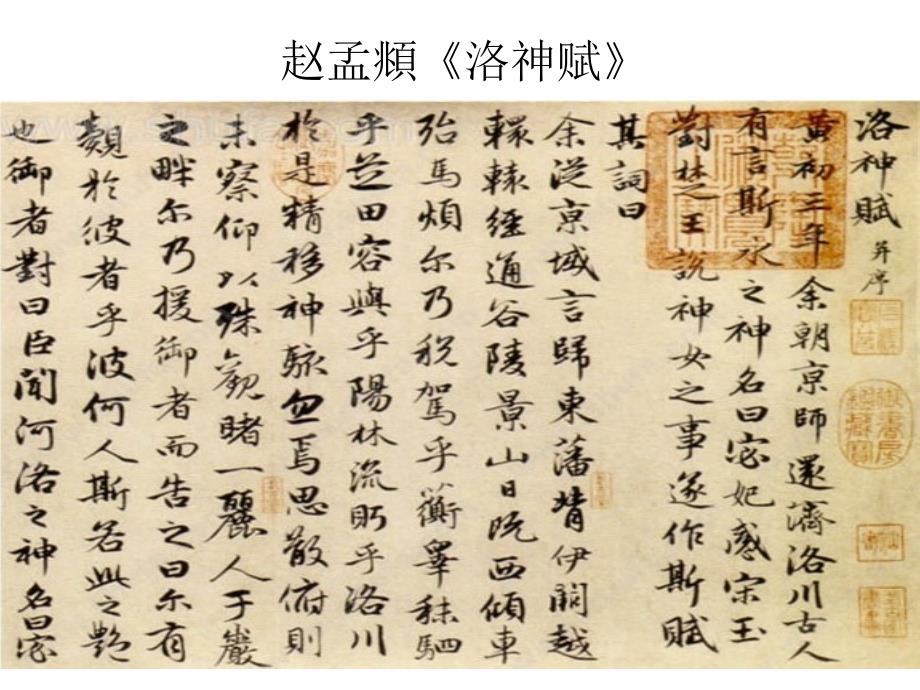 赵孟頫《洛神赋》
洛神賦 并序
黄初三年余朝京師還濟洛川古人
有言斯水之神名曰宓妃感宋玉
對楚王說神女之事遂作斯賦
其詞曰
余從京域言歸東藩背伊闕越
轘轅經通谷陵景山日既西傾車
殆馬煩尔乃稅駕乎蘅皋秣駟
乎芝田容與乎陽林流眄乎洛川
於是精移神駭忽焉思散俯則
未察仰以殊觀睹一麗人于巖
之畔尔乃援御者而告之曰尔有
覿於彼者乎彼何人斯若此之艷
也御者對曰臣聞河洛之神名曰宓